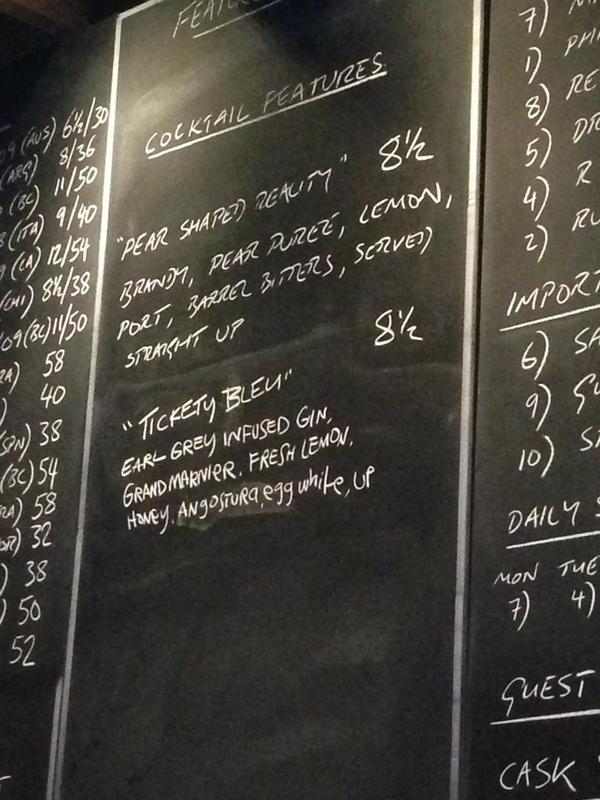 COCKTAIL FEATURES
"PEAR SHAPED REALITY" 8½
BRANDY, PEAR PUREÉ, LEMON,
PORT, BARREL BITTERS, SERVED
STRAIGHT UP
8½
"TICKETY BLEU"
EARL GREY INFUSED GIN,
GRAND MARNIER, FRESH LEMON,
HONEY, ANgOSTURA, egg white, UP
09 (AUS) 6½/30
(ARG) 8/36
(BC) 11/50
(ITA) 9/40
(CA) 12/54
8½/38
09 (BC) 11/50
58
40
(SPN) 38
(BC) 54
58
32
38
50
52
7)
1)
8) RE
5)
4) R
2)
IMPORT
6) SA
9)
10)
DAILY
MON TUE
7) 4)
GUEST
CASK